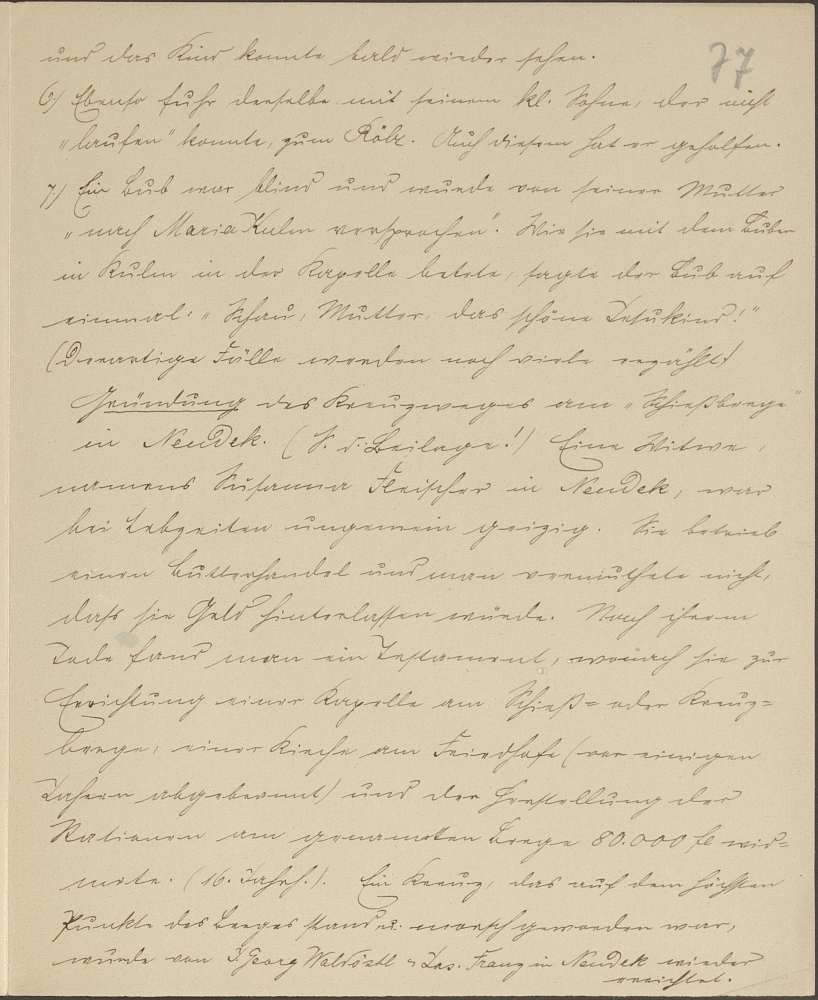 77
und das Kind konnte bald wieder sehen.
6.) Ebenso fuhr derselbe mit seinem kl. Sohne, der nicht
"laufen" konnte, zum Kölz. Auch diesem hat er geholfen.
7.) Ein Bub war blind und wurde von seiner Mutter
"nach Maria Kulm versprochen". Wie sie mit dem Buben
in Kulm in der Kapelle betete, sagte der Bub auf
einmal: "Schau, Mutter, das schöne Jesukind!"
(Derartige Fälle werden noch viele erzählt)
Gründung des Kreuzweges am "Schießberge"
in Neudek. (S. d. Beilage!) Eine Witwe,
namens Susanna Fleischer in Neudek, war
bei Lebzeiten ungemein geizig. Sie betrieb
einen Butterhandel und man vermuthete nicht,
daß sie Geld hinterlassen würde. Nach ihrem
Tode fand man ein Testament, wonach sie zur
Errichtung einer Kapelle am Schieß= oder Kreuz=
berge, einer Kirche am Friedhofe (vor einigen
Jahren abgebrannt) und der Herstellung der
Stationen am genannten Berge 80.000 fl wid=
mete. (16. Jahrh.). Ein Kreuz, das auf dem höchsten
Punkte des Berges stand u. morsch geworden war,
wurde von J. Georg Waldöstl u. Jos. Franz in Neudek wieder
errichtet.